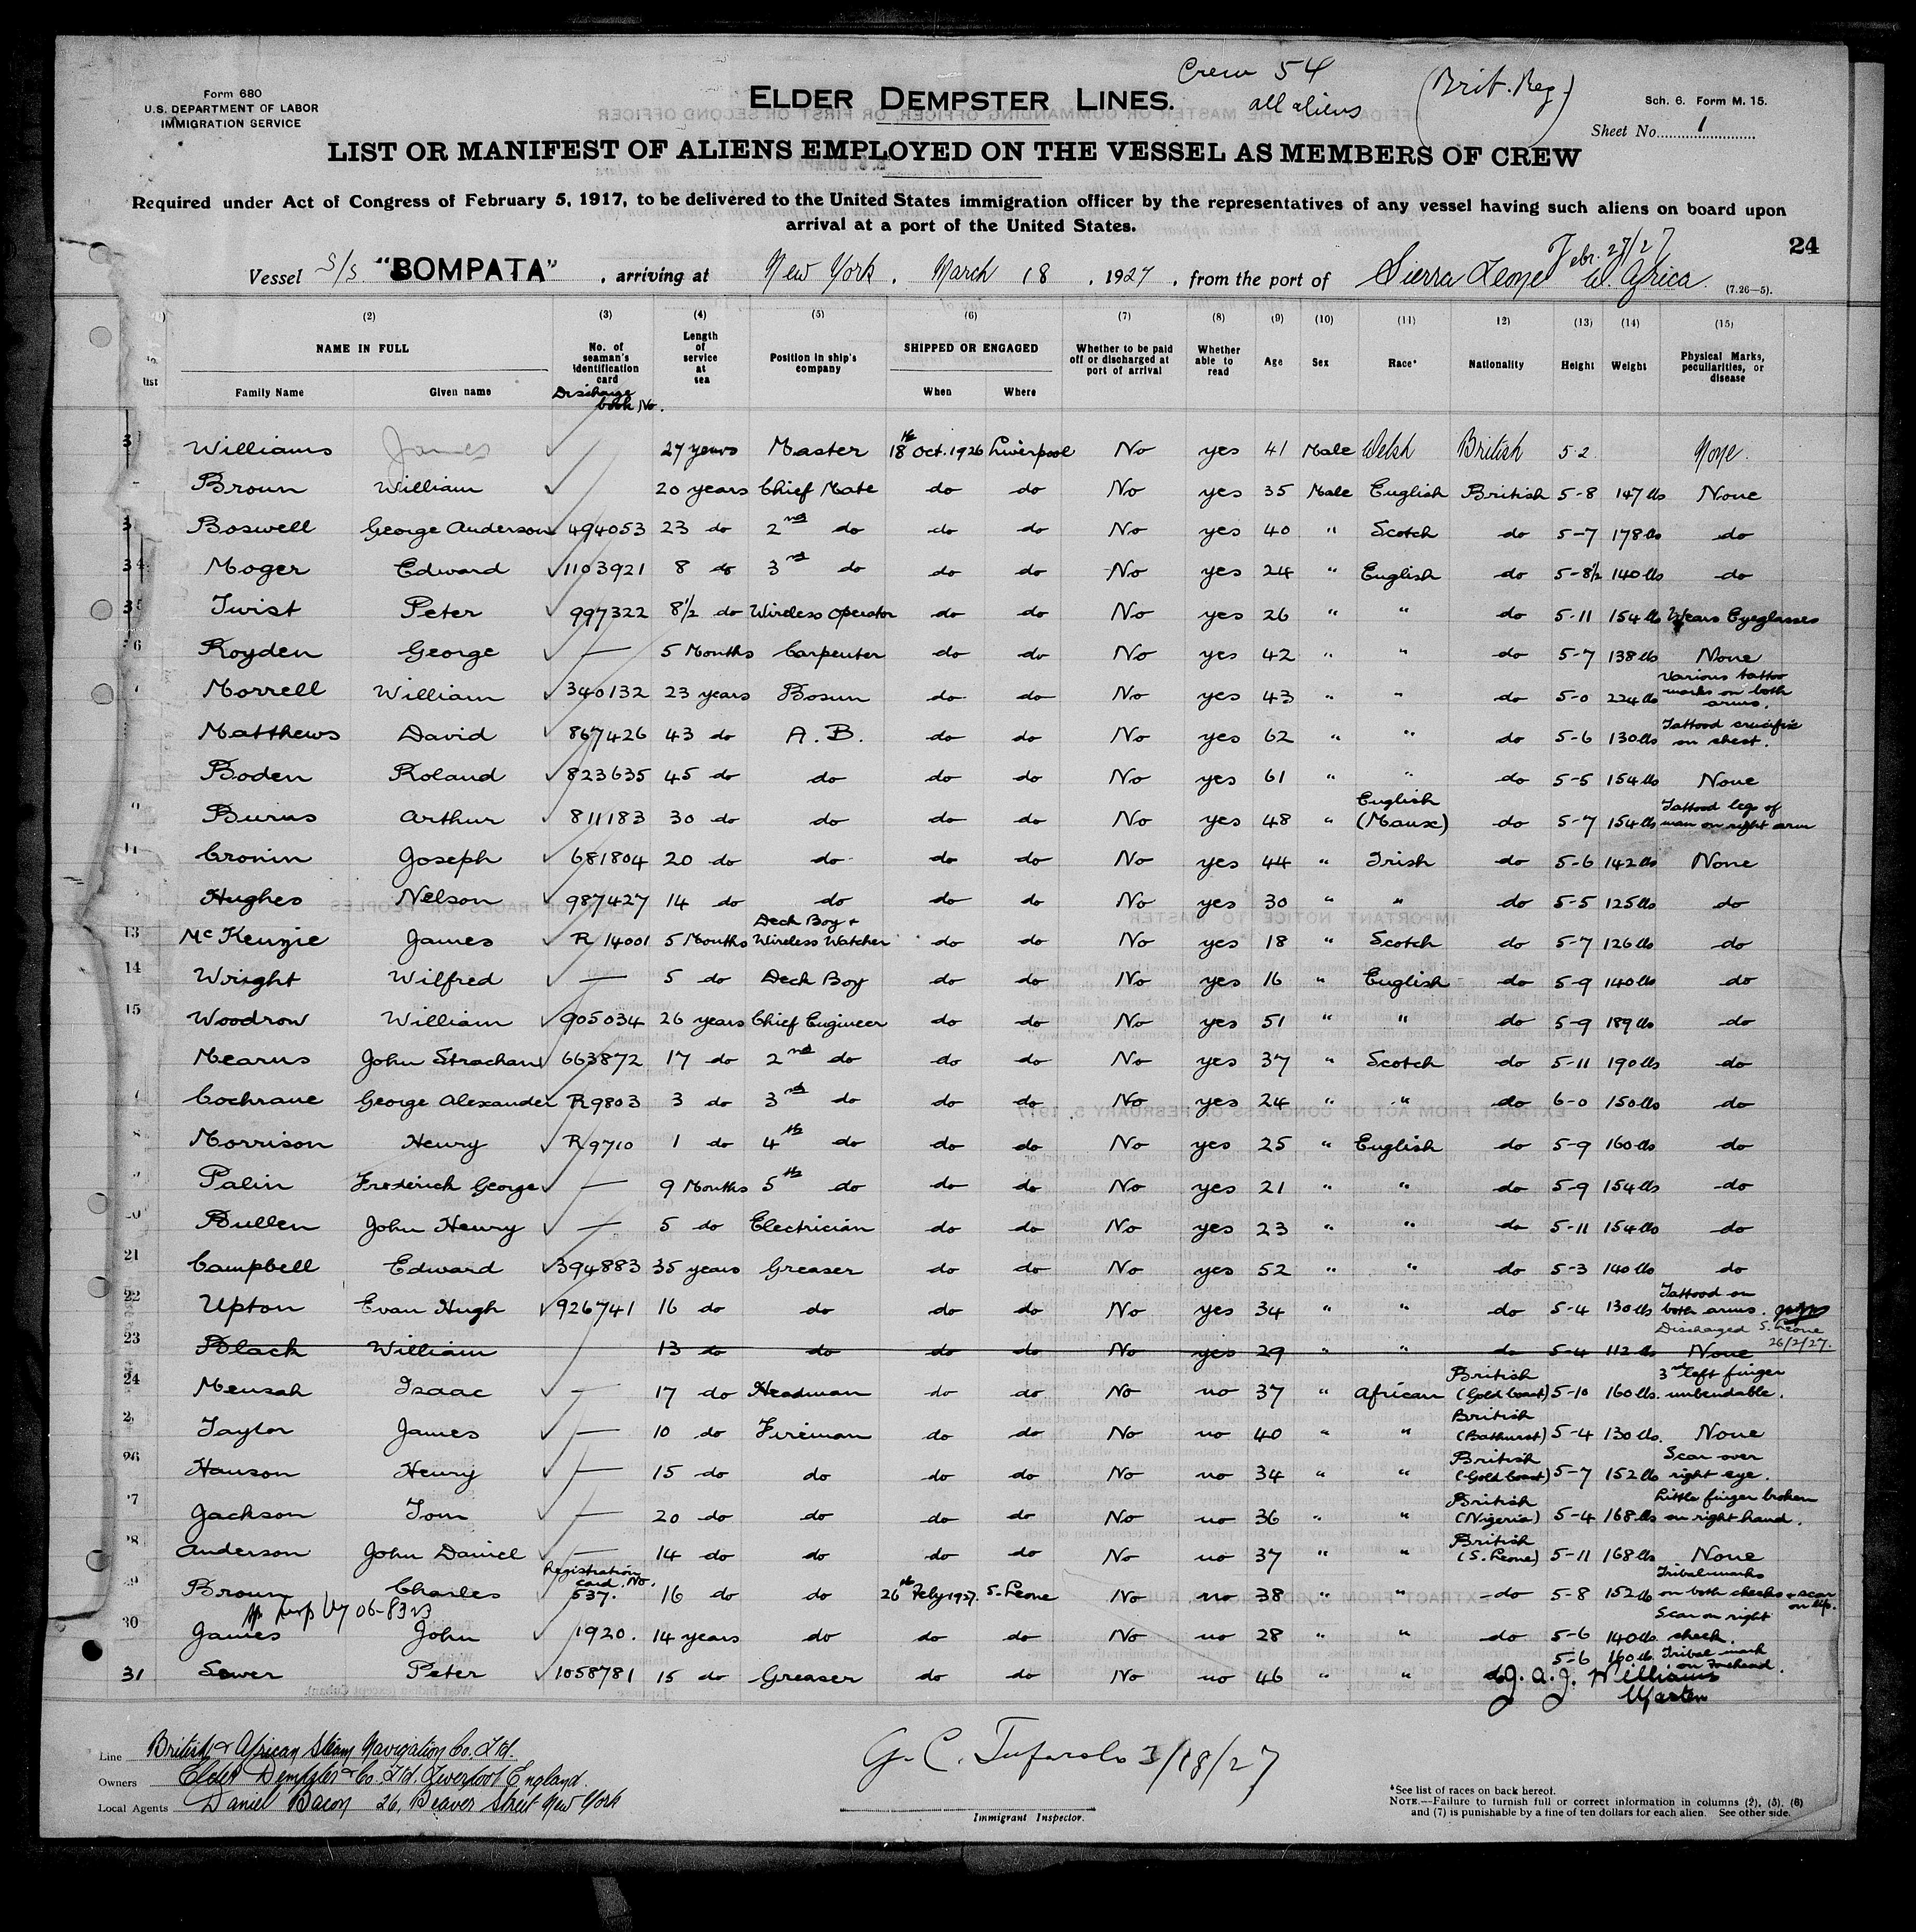 Form 680
U.S. DEPARTMENT OF LABOR
IMMIGRATION SERVICE
ELDER DEMPSTER LINES.
Crew 54
all aliens
(Brit. Reg.)
Sch. 6. Form M. 15.
Sheet No. 1
LIST OR MANIFEST OF ALIENS EMPLOYED ON THE VESSEL AS MEMBERS OF CREW
Required under Act of Congress of February 5, 1917, to be delivered to the United States immigration officer by the representatives of any vessel having such aliens on board upon
arrival at a port of the United States.
24
Febr. 27/27
Vessel S/S. "BOMPATA", arriving at New York, March 18, 1927, from the port of Sierra Leone W. Africa. (7.26—5).
(2) (3) (4) (5) (6) (7) (8) (9) (10) (11) 12) (13) (14) (15)
NAME IN FULL
Family Name Given name
No. of seaman's identification card
Discharge book No.
Length of service at sea
Position in ship's company
SHIPPED OR ENGAGED
When Where
Whether to be paid off or discharged at port of arrival
Whether able to read
Age Sex Race* Nationality Height Weight
Physical Marks, peculiarities, or disease
Williams James 27 years Master 18th Oct. 1926 Liverpool No yes 41 Male Welsh British 5-2 None.
Broun William 20 years Chief Mate do do No yes 35 Male English British 5-8 147 lbs None
Boswell George Anderson 494053 23 do 2nd do do do No yes 40 " Scotch do 5-7 178 lbs do
Moger Edward 1103921 8 do 3rd do do do No yes 24 " English do 5-8½ 140 lbs do
Twist Peter 997322 8½ do Wireless Operator do do No yes 26 " " do 5-11 154 lbs Wears Eyeglasses
6 Royden George — 5 Months Carpenter do do No yes 42 " " do 5-7 138 lbs None
Morrell William 340132 23 years Bosun do do No yes 43 " " do 5-0 224 lbs Various tattoo marks on both arms.
Matthews David 867426 43 do A.B. do do No yes 62 " " do 5-6 130 lbs Tattood crucifix on chest.
Boden Roland 823635 45 do do do do No yes 61 " " do 5-5 154 lbs None
Burns Arthur 811183 30 do do do do No yes 48 " English (Manx) do 5-7 154 lbs Tattood legs of man on right arm
11 Cronin Joseph 681804 20 do do do do No yes 44 " Irish do 5-6 142 lbs None
Hughes Nelson 987427 14 do do do do No yes 30 " " do 5-5 125 lbs do
13 McKenzie James R 14001 5 Months Deck Boy + Wireless Watcher do do No yes 18 " Scotch do 5-7 126 lbs do
14 Wright Wilfred — 5 do Deck Boy do do No yes 16 " English do 5-9 140 lbs do
15 Woodrow William 905034 26 years Chief Engineer do do No yes 51 " " do 5-9 189 lbs do
Mearns John Strachan 663872 17 do 2nd do do do No yes 37 " Scotch do 5-11 190 lbs do
Cochrane George Alexander R9803 3 do 3rd do do do No yes 24 " " do 6-0 150 lbs do
8 Morrison Henry R9710 1 do 4th do do do No yes 25 " English do 5-9 160 lbs do
Palin Frederick George — 9 Months 5th do do do No yes 21 " " do 5-9 154 lbs do
Bullen John Henry — 5 do Electrician do do No yes 23 " " do 5-11 154 lbs do
21 Campbell Edward 394883 35 years Greaser do do No yes 52 " " do 5-3 140 lbs do
22 Upton Evan Hugh 926741 16 do do do do No yes 34 " " do 5-4 130 lbs Tattood on both arms.
Discharged S. Leone 26/2/27.
23 Black William 13 do do do do No yes 29 " " do 5-4 112 lbs None
24 Mensah Isaac — 17 do Headman do do No no 37 " African British (Gold Coast) 5-10 160 lbs. 3rd left finger unbendable.
Taylor James — 10 do Fireman do do No no 40 " " British (Bathurst) 5-4 130 lbs. None
26 Hanson Henry — 15 do do do do No no 34 " " British (Gold Coast) 5-7 152 lbs Scar over right eye.
Jackson Tom — 20 do do do do No no 36 " " British (Nigeria) 5-4 168 lbs Little finger broken on right hand.
Anderson John Daniel — 14 do do do do No no 37 " " British (S. Leone) 5-11 168 lbs None
Broun Charles Registration card. No. 537. 16 do do 26th Feby 1927. S. Leone No no 38 " " do 5-8 152 lbs Tribal marks on both cheeks + scar on lip.
30 James John 1920. 14 years do do do No no 28 " " do 5-6 140 lbs. Scar on right cheek.
31 Sower Peter 1058781 15 do Greaser do do No no 46 " " do 5-6 160 lb. Tribal mark on forehead.
J. A. J. Williams
Master
Line British & African Steam Navigation Co. Ltd.
Owners Elder Dempster & Co. Ltd. Liverpool England.
Local Agents Daniel Bacon 26, Beaver Street New York
3/18/27
Immigrant Inspector.
*See list of races on back hereof.
NOTE.—Failure to furnish full or correct information in columns (2), (3), (6)
and (7) is punishable by a fine of ten dollars for each alien. See other side.